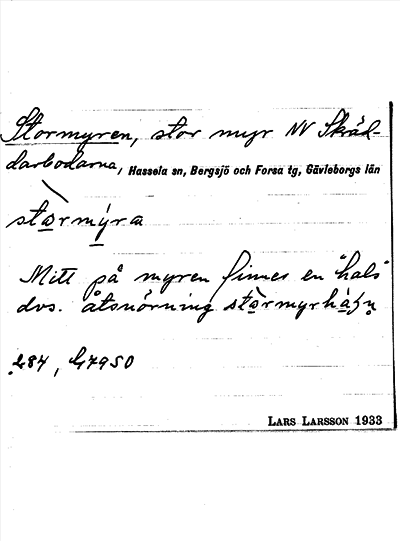 Stormyren, stor myr NV Skräd-
darbodarna, Hassela sn, Bergsjö och Forsa tg, Gävleborgs län
Mitt på myren finnes en "hals"
dvs. åtsnörning
284, G79SO
LARS LARSSON 1933